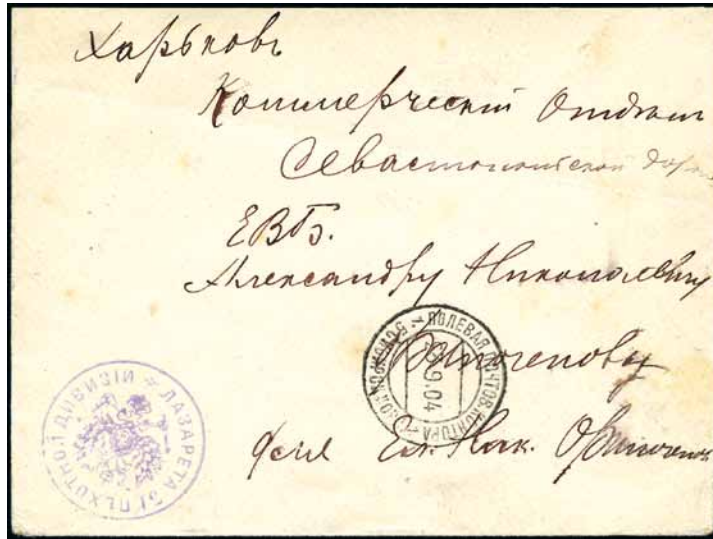 Харьковъ
Коммерческій Отдѣлъ
Севастопольской дор
ЕВБ.
Александру Николаевичу
для Ел. Ник.
ПОЛЕВАЯ ПОЧТОВ. КОНТОРА
9.04
ЛАЗАРЕТА ПѢХОТНОЙ ДИВИЗІИ